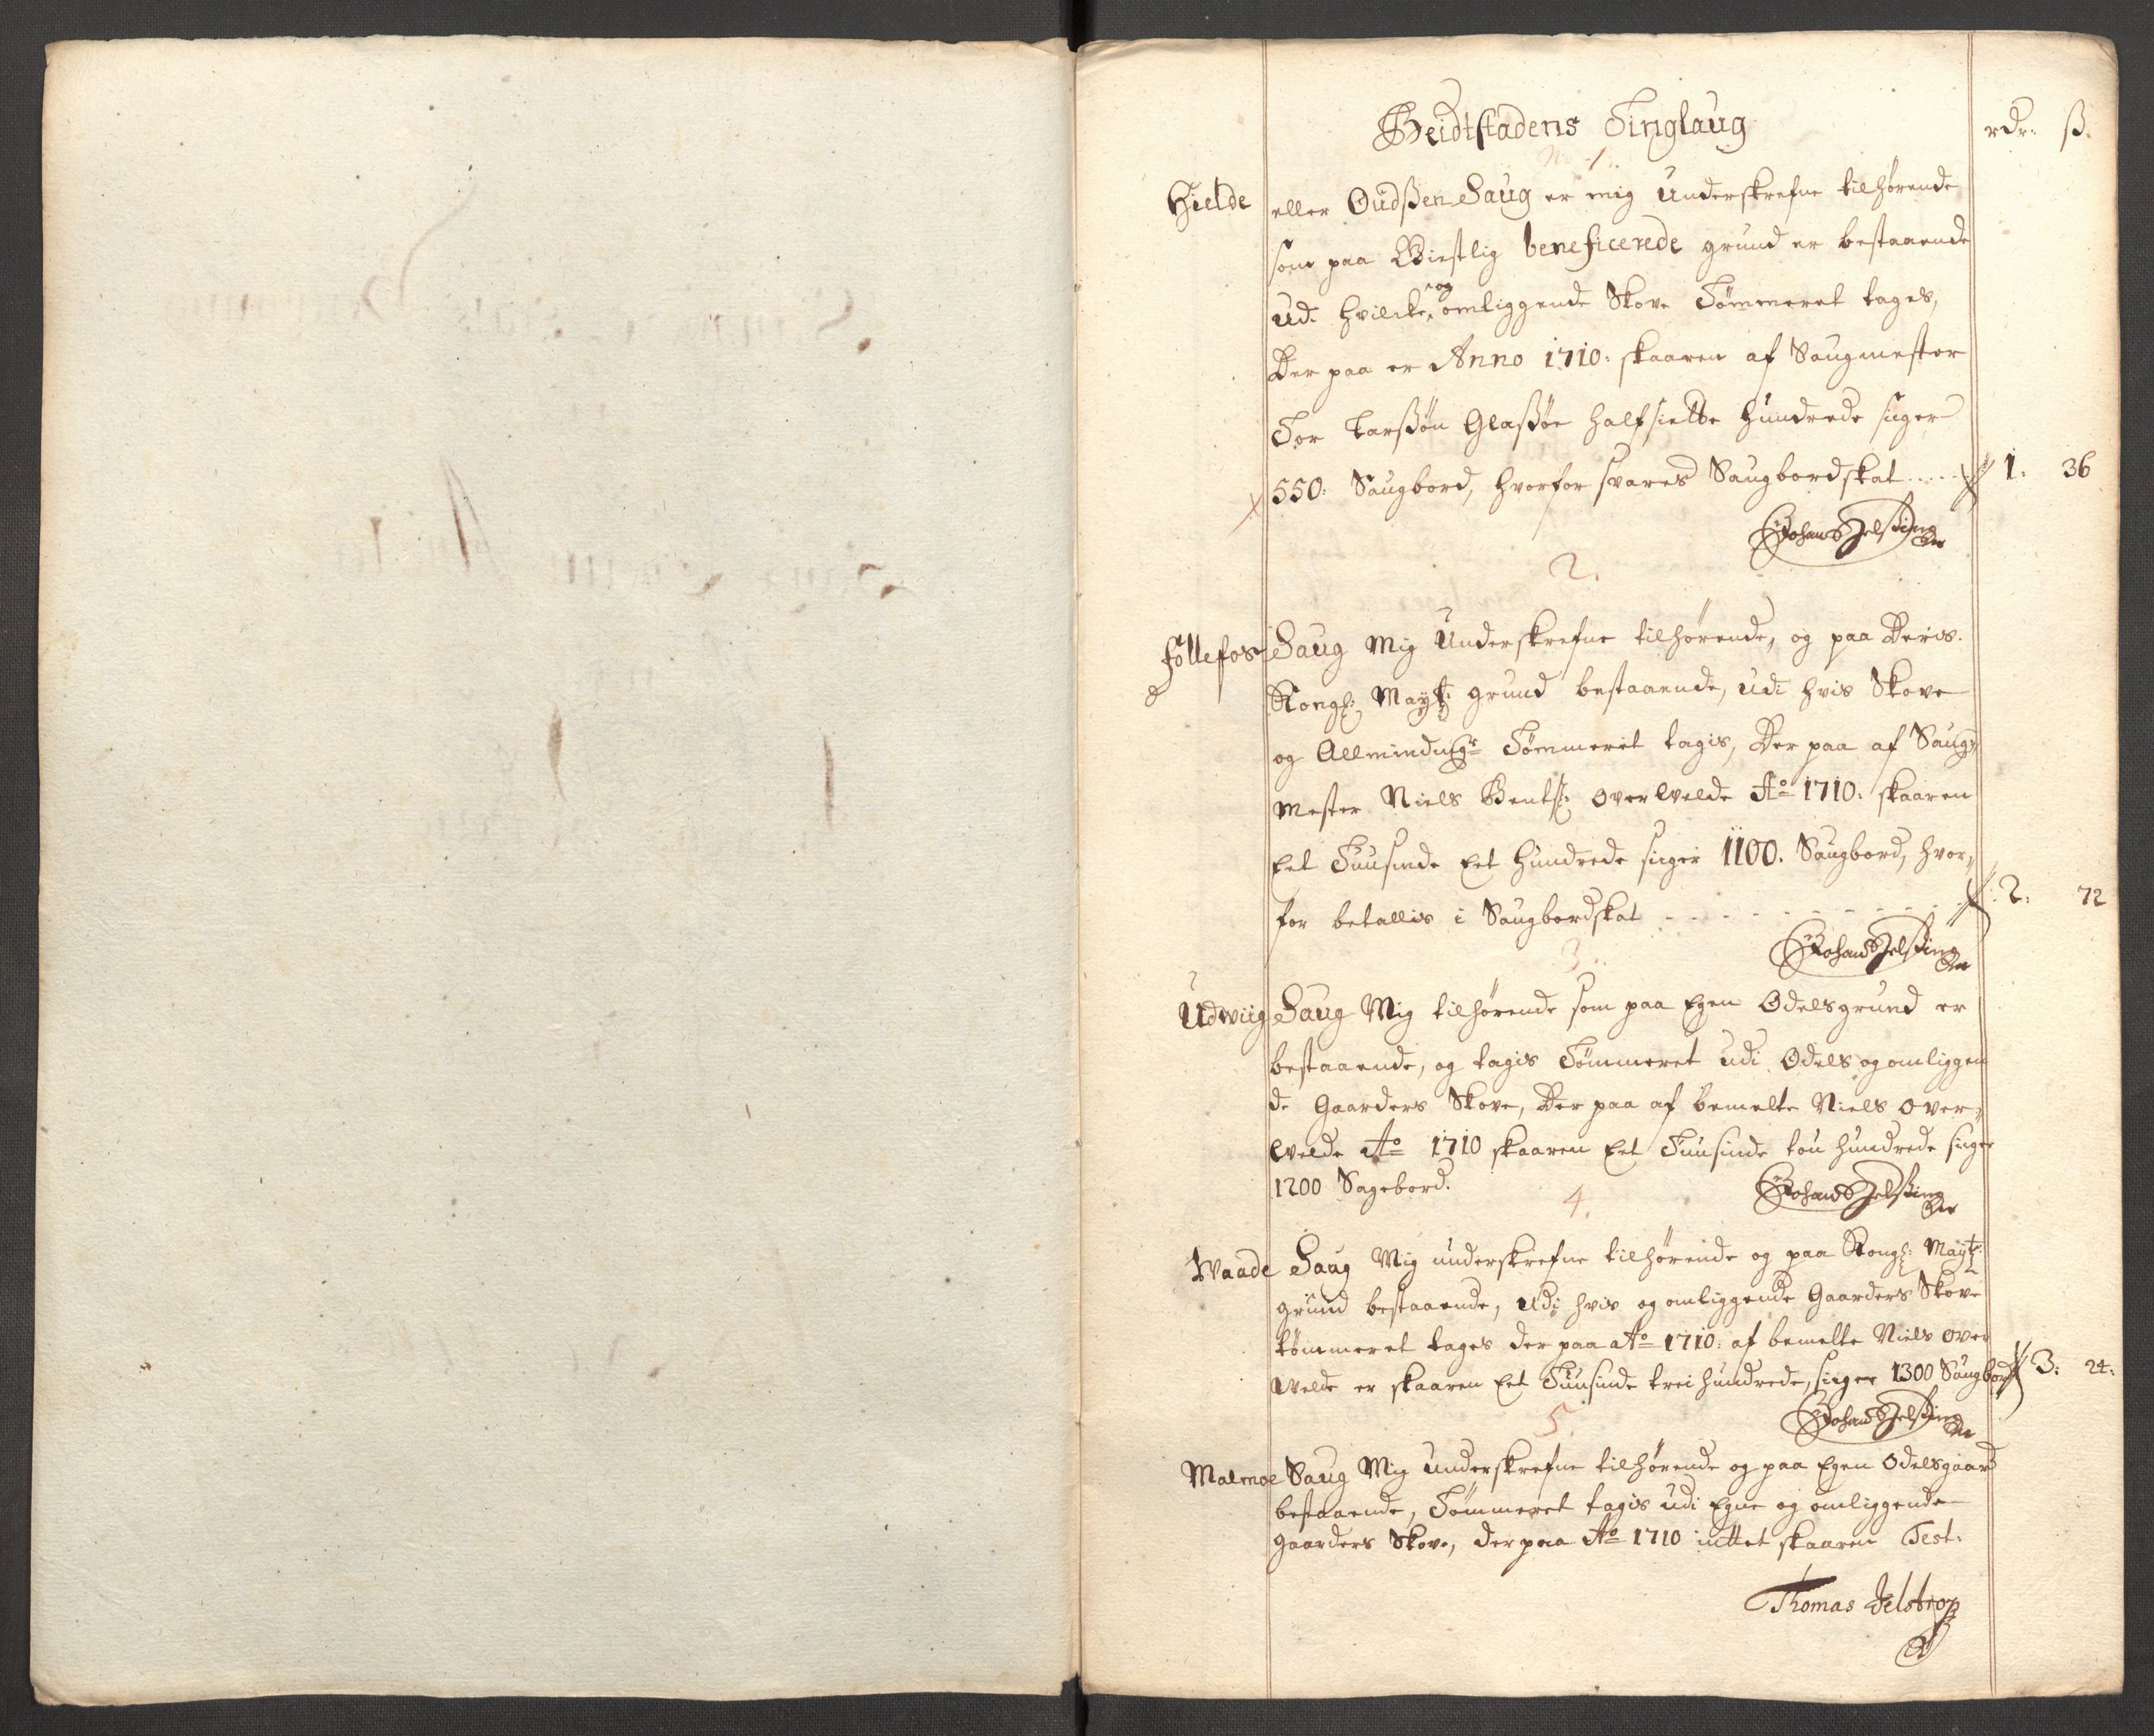 Beidtstadens Tinglaug
rdr: ß.
No 1.
Hielde eller Oudßen Saug er mig Underskrefne tilhørende
som paa Giestlig beneficerede grund er bestaaende
udi hvilcke, og omliggende Skove Tømmeret tages,
Der paa er Anno 1710: skaaren af Saugmester
Tor Larßøn Glaßøe halfsiette hundrede siger
550: Saugbord, hvorfor svares Saugbordskat ..... 1: 36
Johan
2.
Follefos Saug Mig Underskrefne tilhørende, og paa Deris
Kongl: Mayts: grund bestaaende, udi hvis Skove
og Allmindng: Tømmerit tagis, Der paa af Saug-
mester Niels Bentß: Overvelde Ao 1710: skaaren
Eet Tuusinde Eet hundrede siger 1100. Saugbord, hvor-
for betallis i Saugbordskat - - - - - - - - - - 2: 72
Johan
3.
Udwiig Saug Mig tilhørende som paa Egen Odelsgrund er
bestaaende, og tagis Tømmeret udi Odels og omliggen
de Gaarders Skove, Der paa af bemelte Niels Over-
velde Ao 1710 skaaren Eet Tuusinde tou hundrede siger
1200 Sagebord.
Johan
4.
Waade Saug Mig underskrefne tilhørende og paa Kongl: Mayts:
grund bestaaende, udi hvis og omliggende Gaarders Skove
tømmeret tages der paa Ao 1710: af bemelte Niels Over
velde er skaaren Eet Tuusinde trei hundrede, siger 1300 Saugbord 3: 24:
Johan
5.
Malmoe Saug Mig Underskrefne tilhørende og paa Egen Odelsgaard
bestaaende, Tømmeret tagis udi Egne og omliggende
Gaarders Skove, der paa Ao 1710 inttet skaaren Test:
Thomas Jelstrop